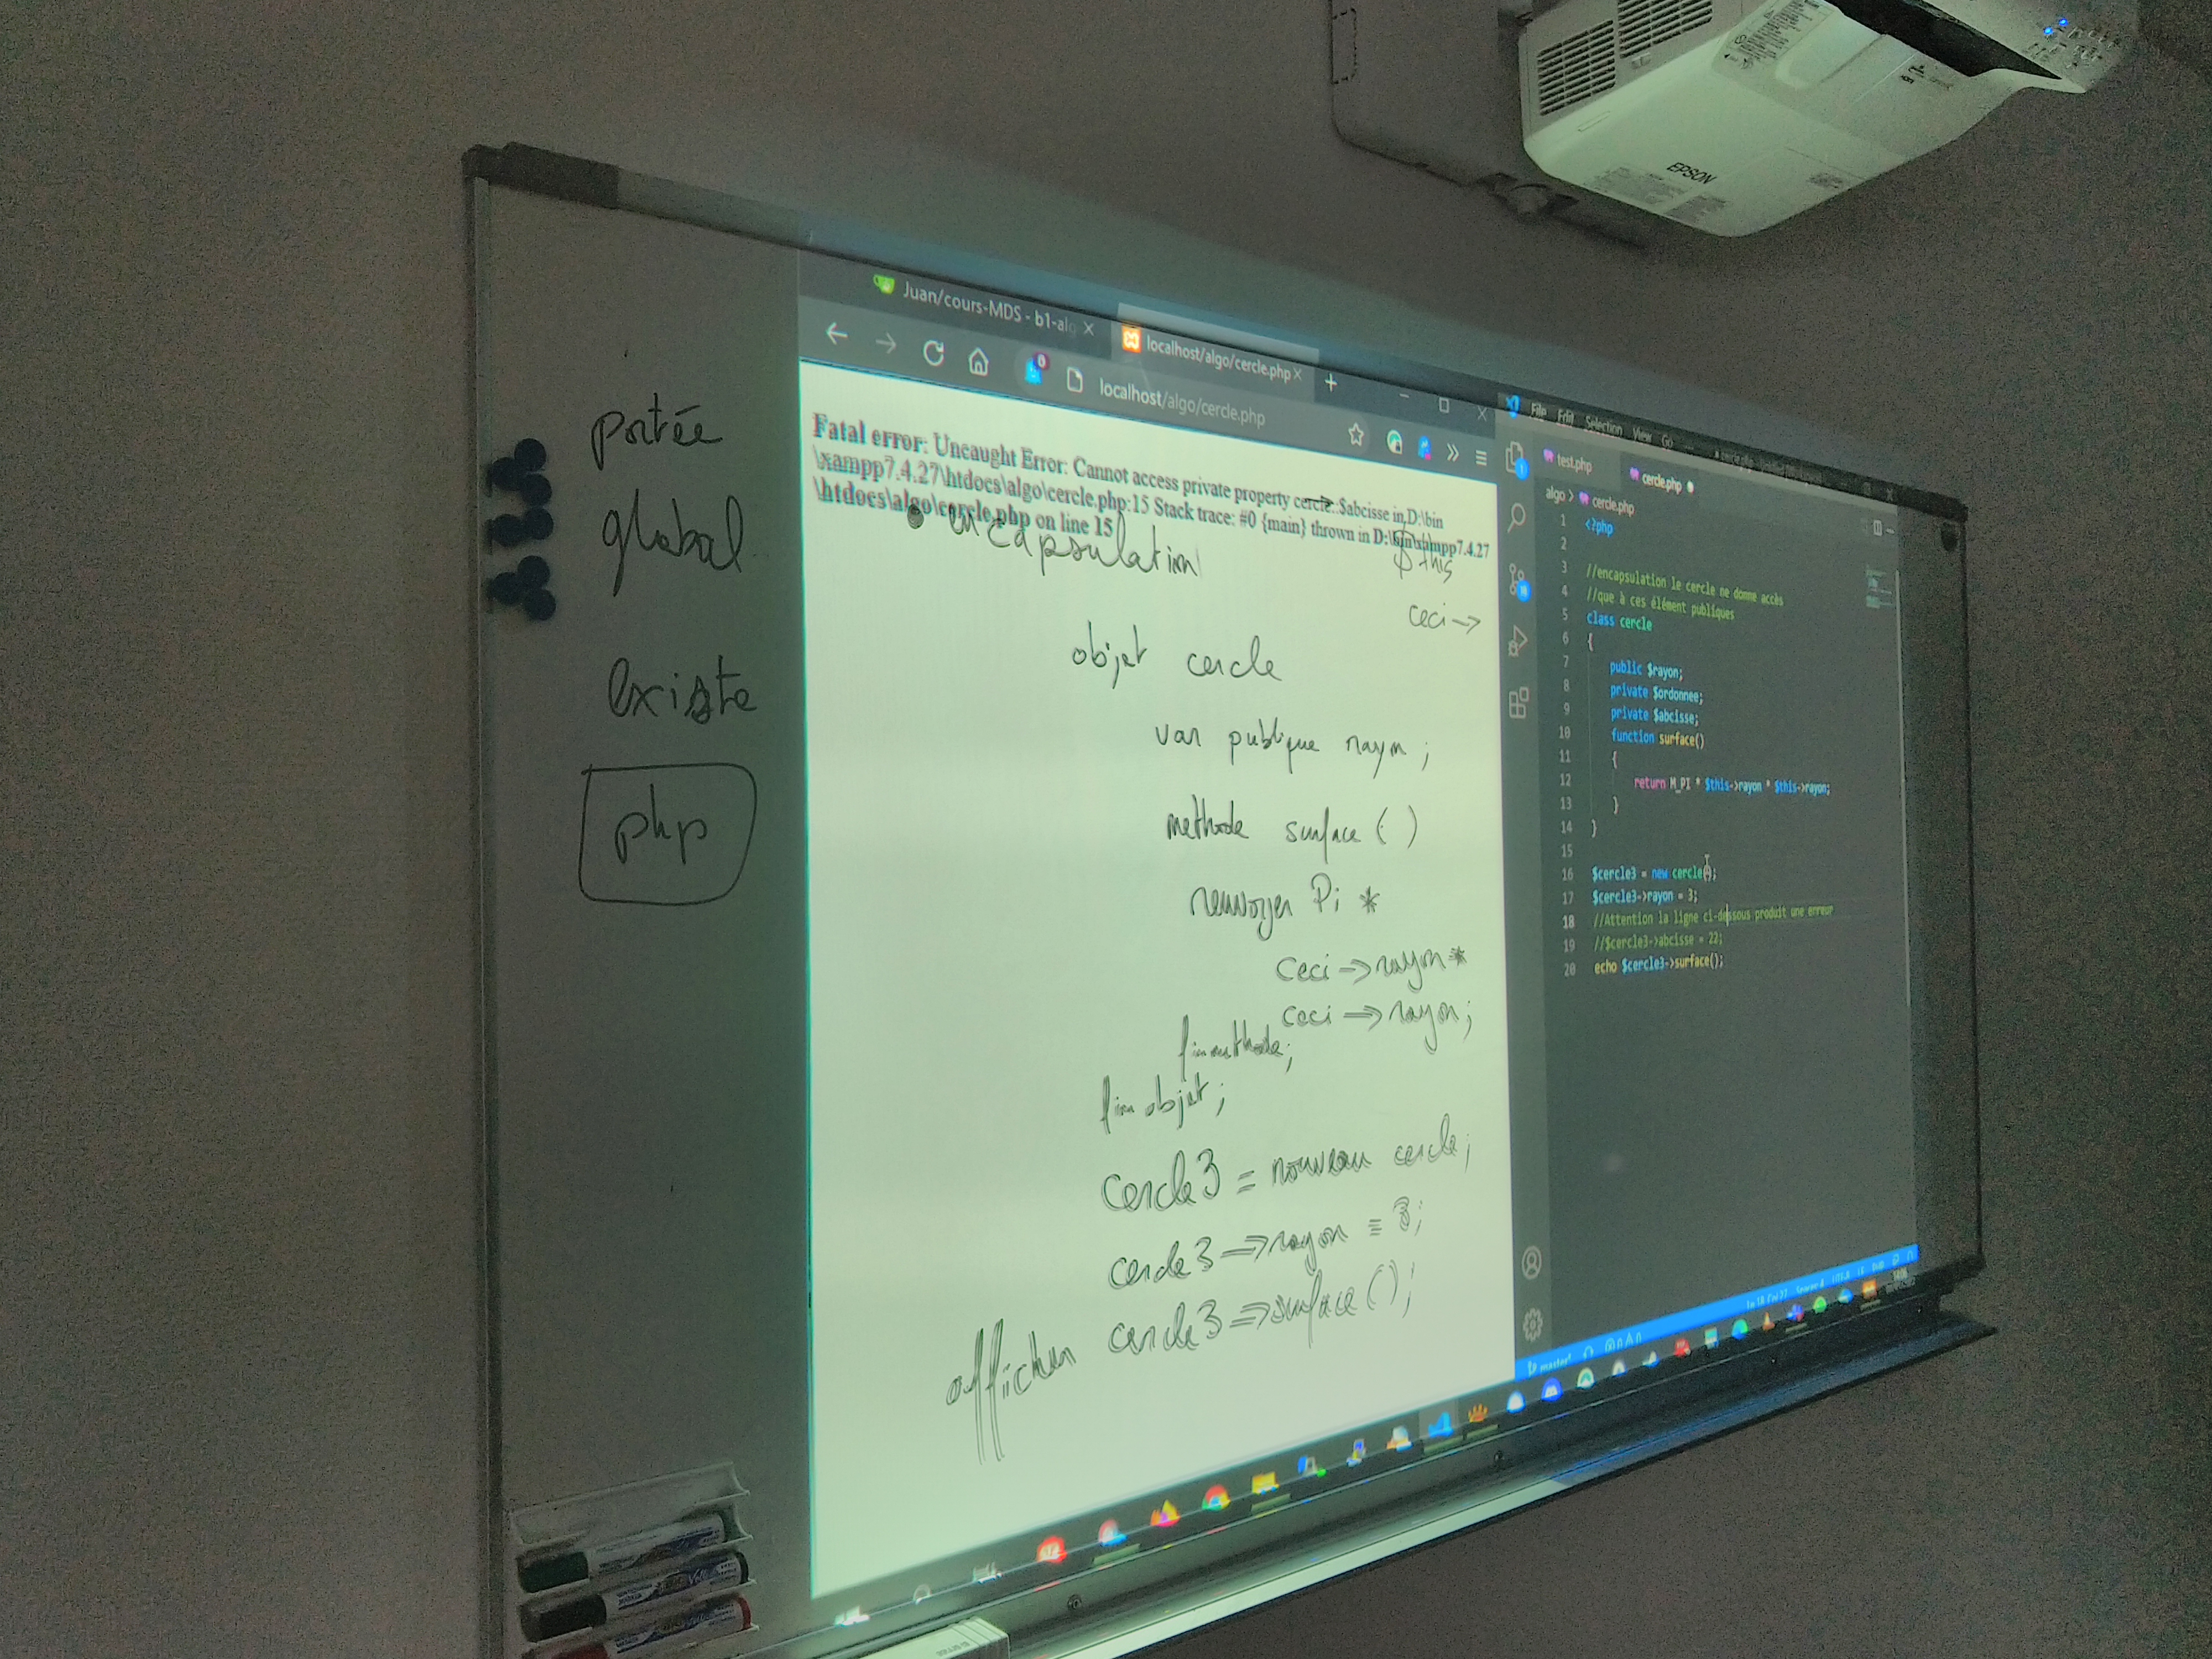 EPSON
portée
global
existe
php
Juan/cours-MDS - b1-alg
localhost/algo/cercle.php
localhost/algo/cercle.php
Fatal error: Uncaught Error: Cannot access private property cercle::$abcisse in D:\bin
\xampp7.4.27\htdocs\algo\cercle.php:15 Stack trace: #0 {main} thrown in D:\bin\xampp7.4.27
\htdocs\algo\cercle.php on line 15
encapsulation
$this
ceci →
objet cercle
var publique rayon ;
methode surface ( )
renvoyer Pi *
ceci → rayon *
ceci → rayon ;
fin methode ;
fin objet ;
cercle3 = nouveau cercle ;
cercle3 → rayon = 3 ;
afficher cercle3 → surface ( ) ;
File Edit Selection View Go
test.php
cercle.php
algo > cercle.php
1 <?php
2
3 //encapsulation le cercle ne donne accès
4 //que à ces élément publiques
5 class cercle
6 {
7 public $rayon;
8 private $ordonnee;
9 private $abcisse;
10 function surface()
11 {
12 return M_PI * $this->rayon * $this->rayon;
13 }
14 }
15
16 $cercle3 = new cercle();
17 $cercle3->rayon = 3;
18 //Attention la ligne ci-dessous produit une erreur
19 //$cercle3->abcisse = 22;
20 echo $cercle3->surface();
master*